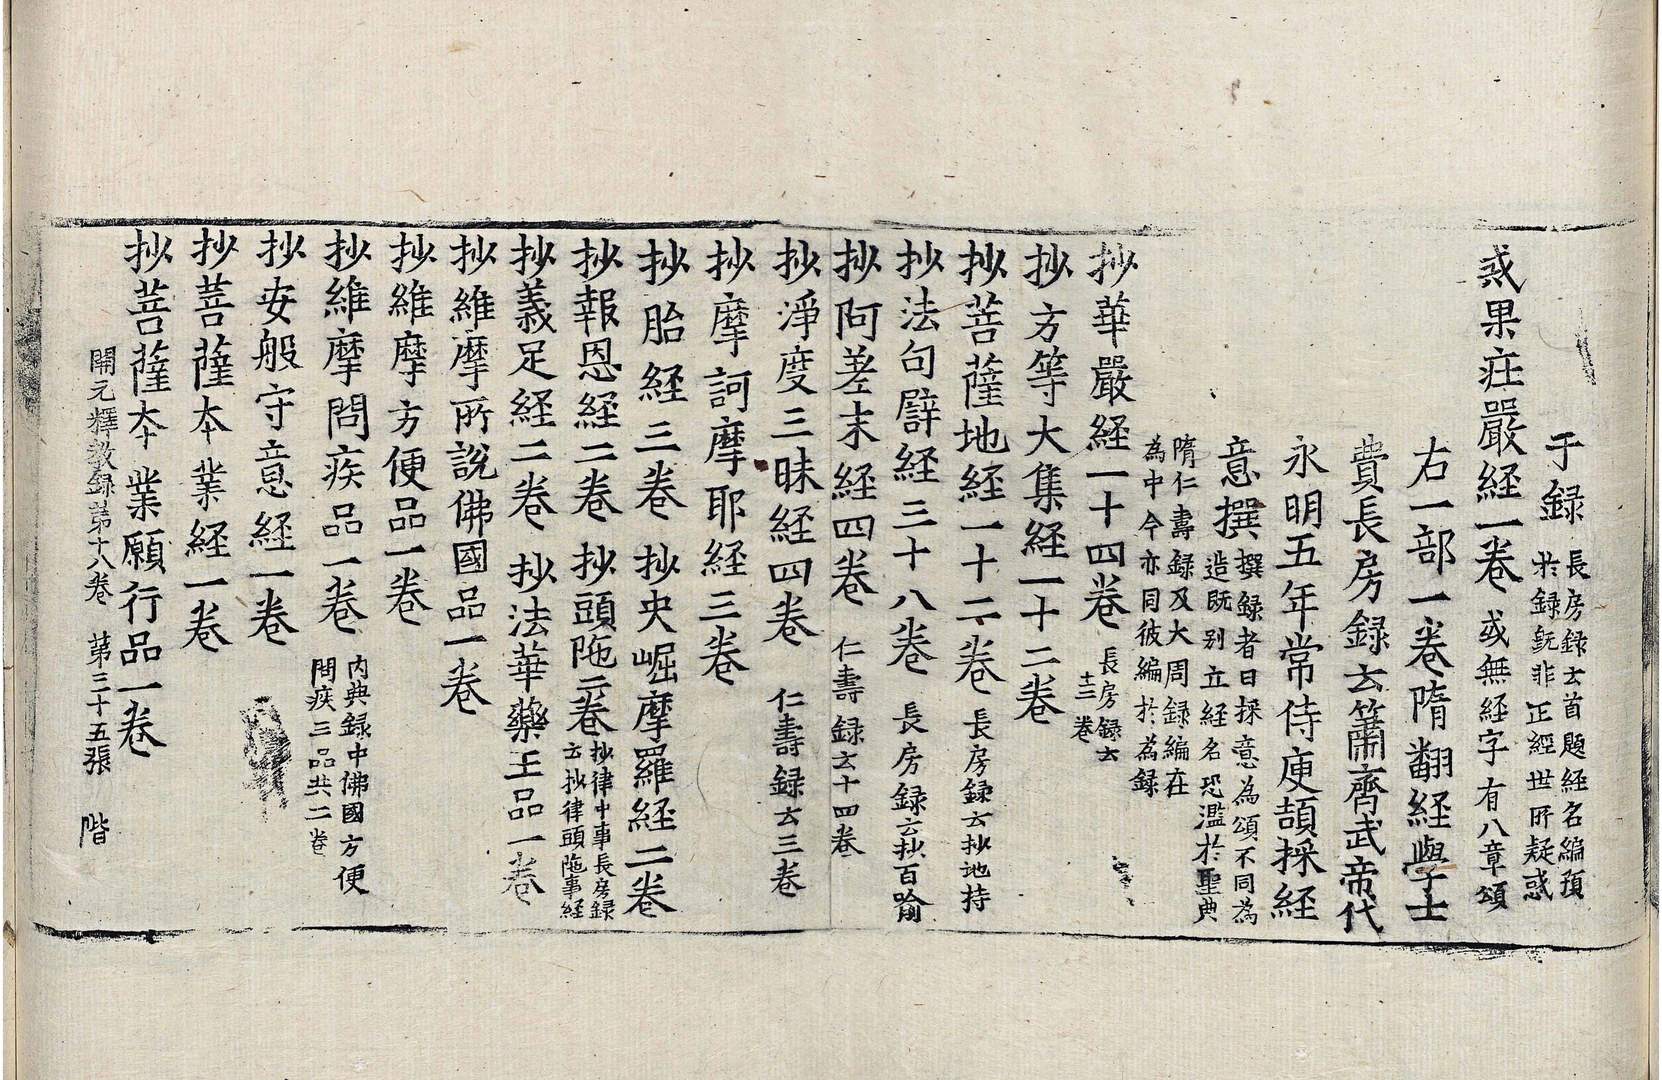 于録長房録云首題經名編預於録既非正經世所疑惑
惑果莊嚴経一卷或無經字有八章頌
右一部一卷隋翻経學士
費長房録云蕭齊武帝代
永明五年常侍庾頡採経
意撰撰録者曰採意為頌不同為造既别立經名恐濫於聖典
隋仁壽録及大周録編在為中今亦同彼編於為録
抄華嚴経一十四卷長房録云十三卷
抄方等大集経一十二卷
抄菩薩地経一十二卷長房録云抄地持
抄法句譬経三十八卷長房録云抄百喻
抄阿差末経四卷仁壽録云十四卷
抄淨度三昧経四卷仁壽録云三卷
抄摩訶摩耶経三卷
抄胎経三卷 抄央崛摩羅経二卷
抄報恩経二卷 抄頭陁二卷抄律中事長房録云抄律頭陁事経
抄義足経二卷 抄法華藥王品一卷
抄維摩所說佛國品一卷
抄維摩方便品一卷
抄維摩問疾品一卷内典録中佛國方便問疾三品共二卷
抄安般守意経一卷
抄菩薩夲業経一卷
抄菩薩夲業願行品一卷
開元釋教録苐十八卷 苐三十五張 階